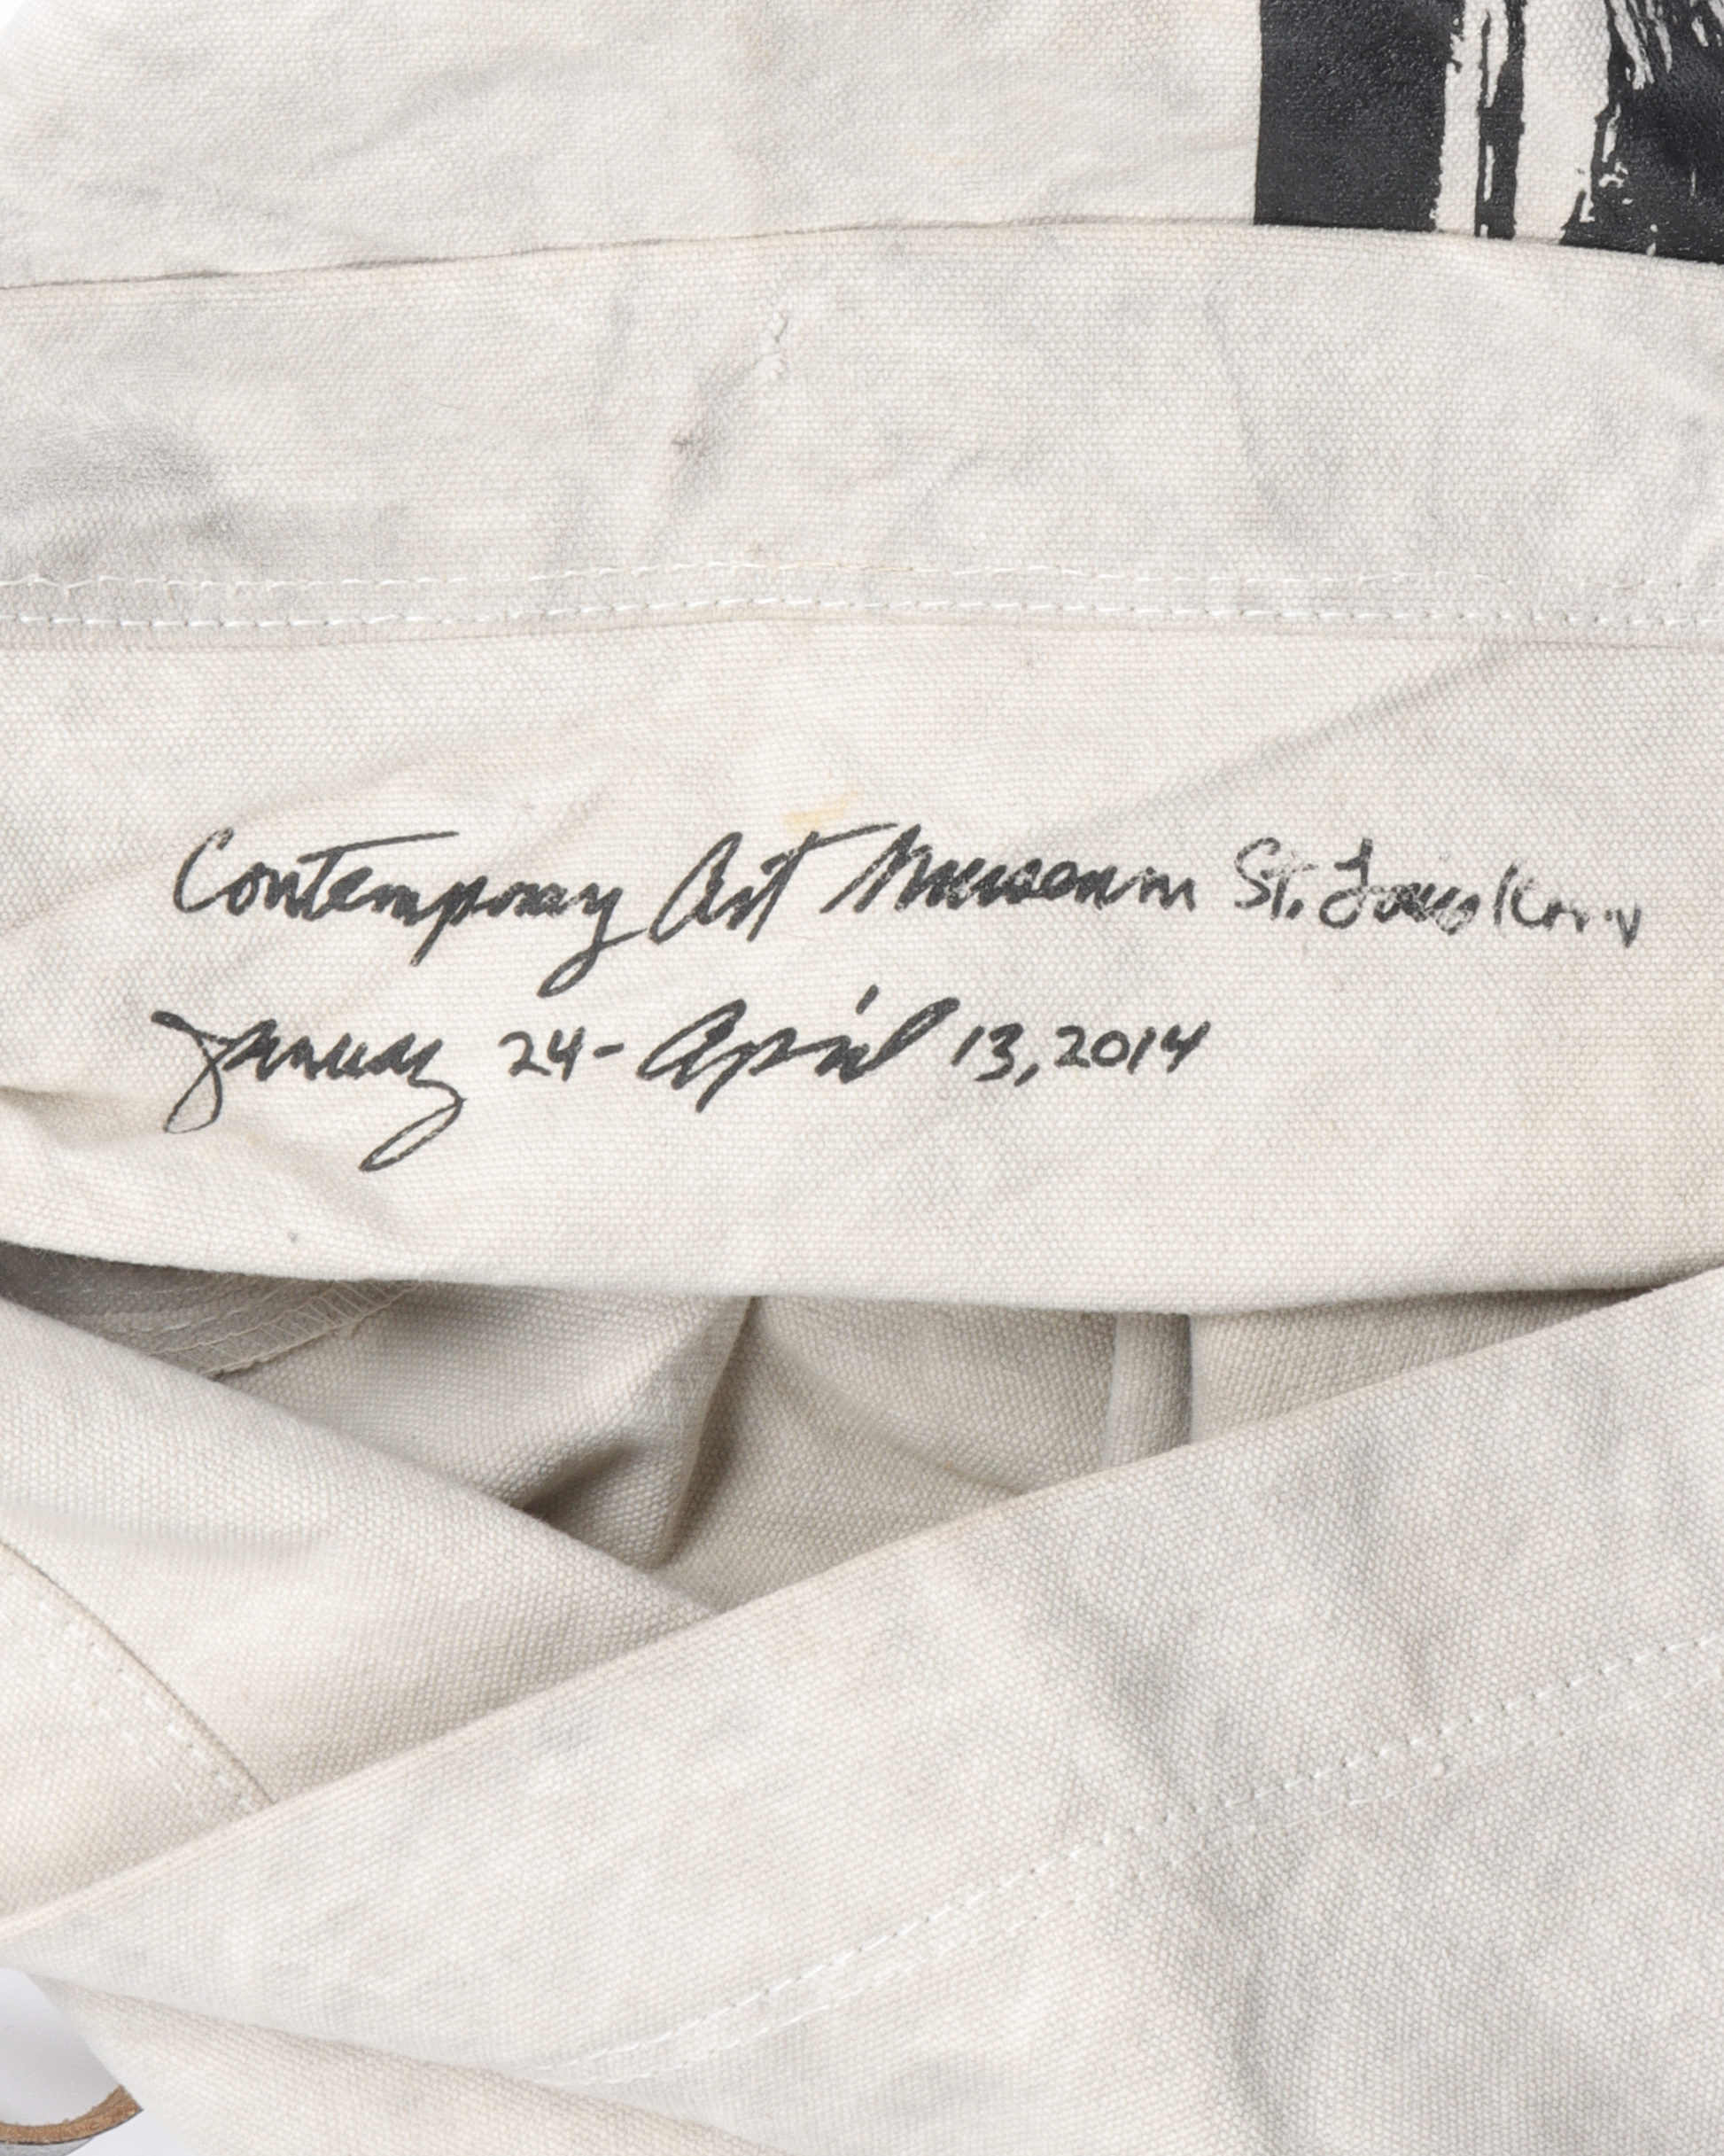 Contemporary Art Museum St. Louis
January 24 - April 13, 2014